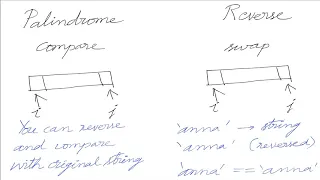 Palindrome
compare
i j
You can reverse
and compare
with original string
Reverse
swap
i j
'anna' → string
'anna' (reversed)
'anna' == 'anna'